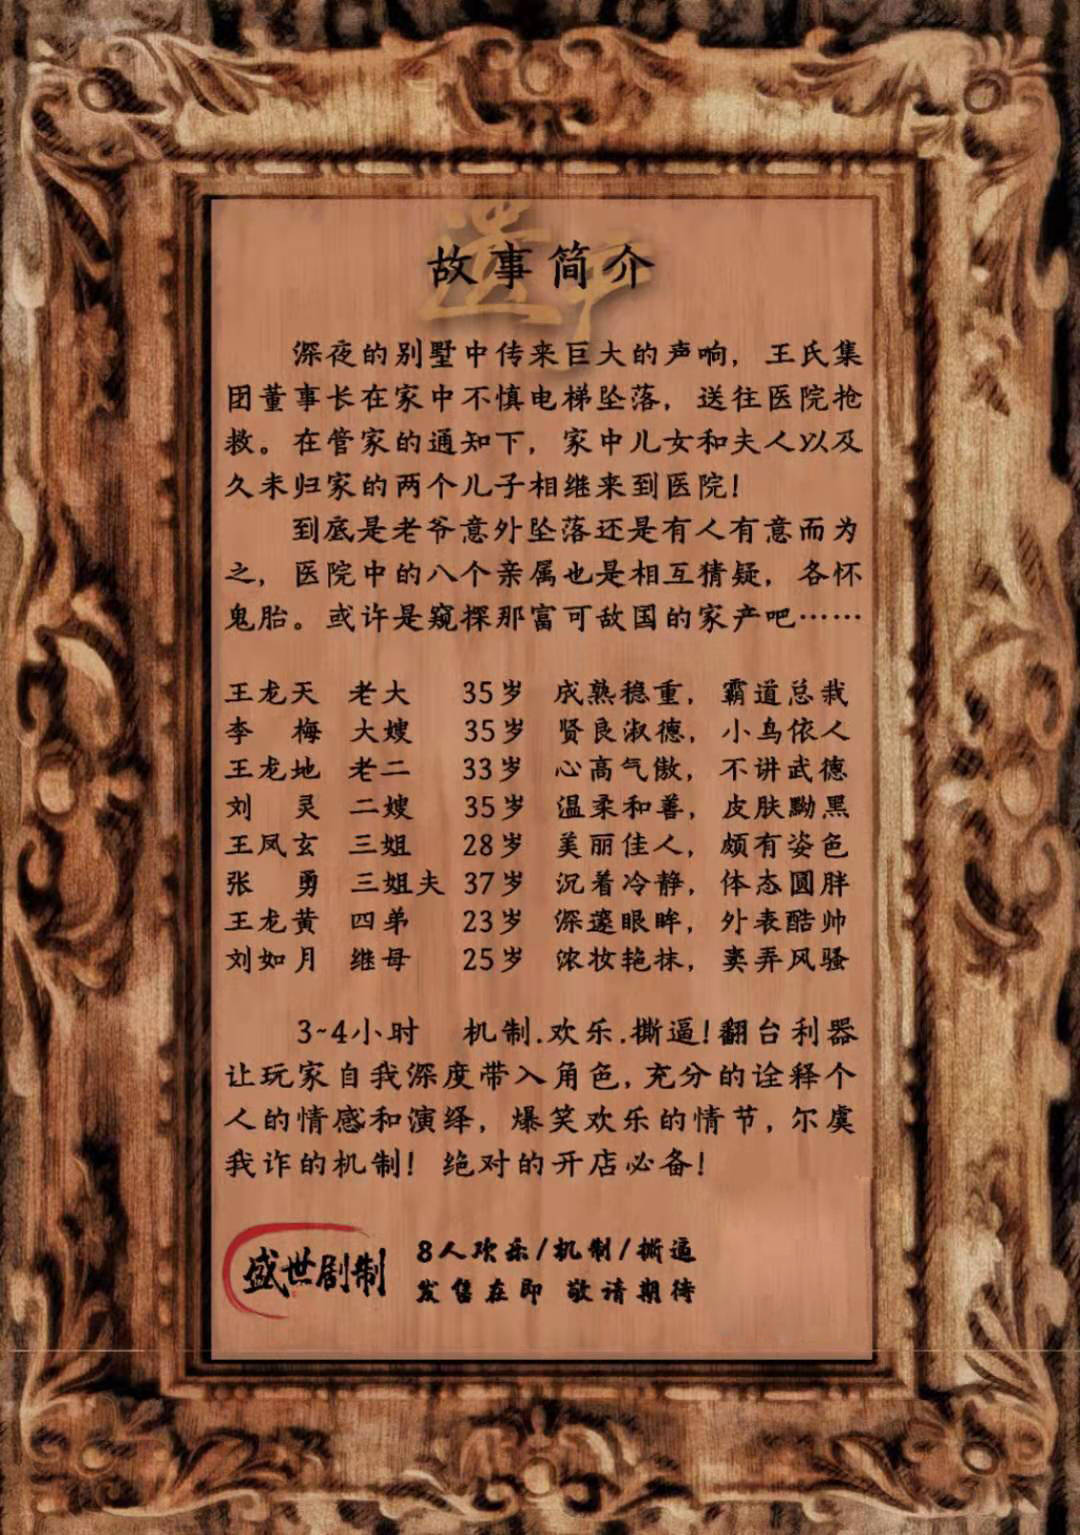 故事简介
深夜的别墅中传来巨大的声响，王氏集
团董事长在家中不慎电梯坠落，送往医院抢
救。在管家的通知下，家中儿女和夫人以及
久未归家的两个儿子相继来到医院！
到底是老爷意外坠落还是有人有意而为
之，医院中的八个亲属也是相互猜疑，各怀
鬼胎。或许是窥探那富可敌国的家产吧……
王龙天 老大 35岁 成熟稳重，霸道总裁
李 梅 大嫂 35岁 贤良淑德，小鸟依人
王龙地 老二 33岁 心高气傲，不讲武德
刘 灵 二嫂 35岁 温柔和善，皮肤黝黑
王凤玄 三姐 28岁 美丽佳人，颇有姿色
张 勇 三姐夫 37岁 沉着冷静，体态圆胖
王龙黄 四弟 23岁 深邃眼眸，外表酷帅
刘如月 继母 25岁 浓妆艳抹，卖弄风骚
3~4小时 机制.欢乐.撕逼!翻台利器
让玩家自我深度带入角色,充分的诠释个
人的情感和演绎，爆笑欢乐的情节,尔虞
我诈的机制！绝对的开店必备！
盛世剧制
8人欢乐/机制/撕逼
发售在即 敬请期待